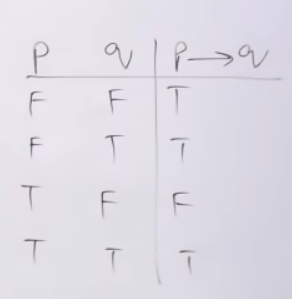 P q P → q
F F T
F T T
T F F
T T T